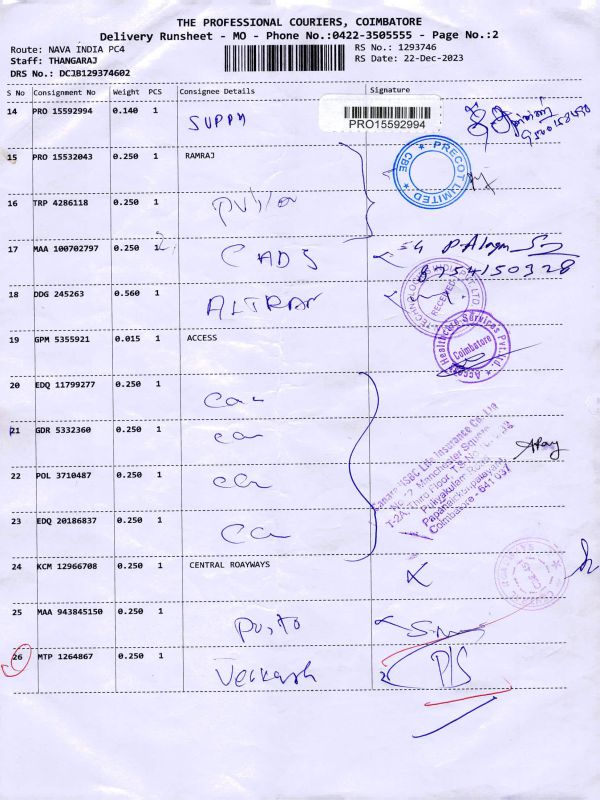 THE PROFESSIONAL COURIERS, COIMBATORE
Delivery Runsheet - MO - Phone No.:0422-3505555 - Page No.:2
Route: NAVA INDIA PC4
RS No.: 1293746
Staff: THANGARAJ
RS Date: 22-Dec-2023
DRS No.: DCJB129374602
S No Consignment No Weight PCS Consignee Details Signature
14 PRO 15592994 0.140 1 SUPPY
PRO15592994
15 PRO 15532043 0.250 1 RAMRAJ
PRECOT LIMITED CBE
16 TRP 4286118 0.250 1
17 MAA 100702797 0.250 1 CADS
8754150328
18 DDG 245263 0.560 1 ALTRAN
RECEIVED
19 GPM 5355921 0.015 1 ACCESS
Access Healthcare Services Pvt. Ltd. Coimbatore
20 EDQ 11799277 0.250 1 Can
21 GDR 5332360 0.250 1 can
Canara HSBC Life Insurance Co. Ltd
No. 7, Manchester Square
T-2A, Third Floor,
Puliyakulam Road
Papanaickenpalayam
Coimbatore - 641 037
22 POL 3710487 0.250 1 can
23 EDQ 20186837 0.250 1 Can
24 KCM 12966708 0.250 1 CENTRAL ROAYWAYS
25 MAA 943845150 0.250 1
26 MTP 1264867 0.250 1 Venkash
P/S